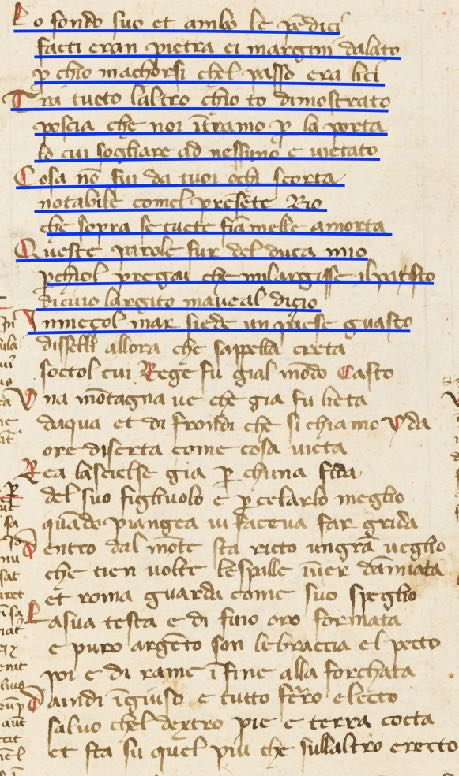 Lo fondo suo et ambo le pẽdici
facti eran pietra ei margini dalato
p chio machorsi chel passo era lici
Tra tucto laltro chio to dimostrato
poscia che noi ĩtramo p la porta
lo cui sogliare ad nessuno e uietato
Cosa nõ fu da tuoi ochi scorta
notabile comel presẽte Rio
che sopra se tucte fiãmelle amorta
Queste parole fur del duca mio
pchiol pregai che milargisse il pasto
dicuio largito maueal disio
In meçol mar siede un paese guasto
dissellj allora che sapella creta
soctol cui Rege fu gial modo Casto
Una mõtagna ue che gia fu lieta
daqua et di frondi che si chiamo Yda
ore diserta come cosa uieta
Rea lascielse gia p chuna fida
del suo figliuolo e p celarlo meglio
quãdo piangea ui faceua far grida
Dentro dal mõte sta ricto un grã ueglio
che tien uolte le spalle ĩuer damiata
et roma guarda come suo speglio
La sua testa e di fino oro formata
e puro argẽto son le braccia el pecto
poi e di rame ĩ fine alla forchata
Da indi ĩgiuso e tutto ferro electo
saluo chel dextro pie e terra cocta
et sta su quel piu che sullaltro erecto